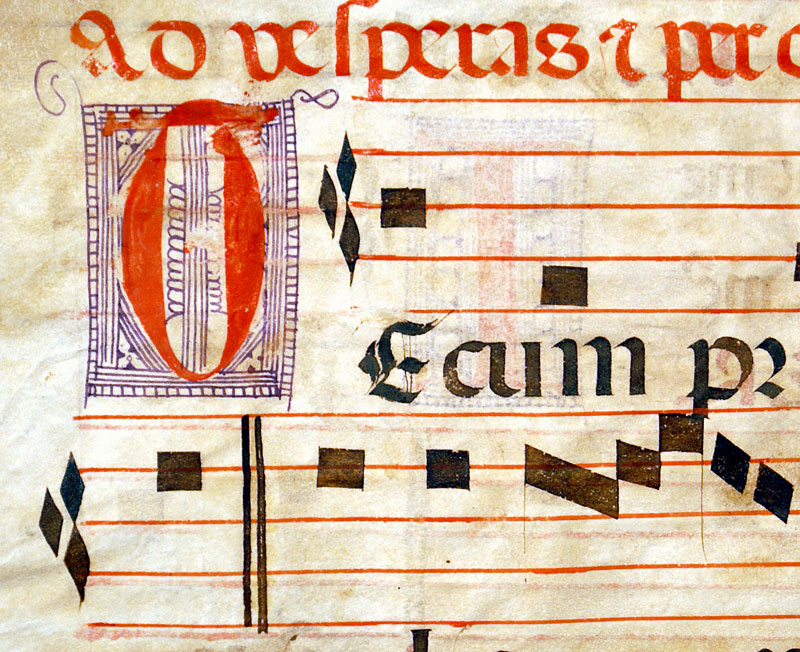 Ad vesperas ⁊ per
TEcum pr